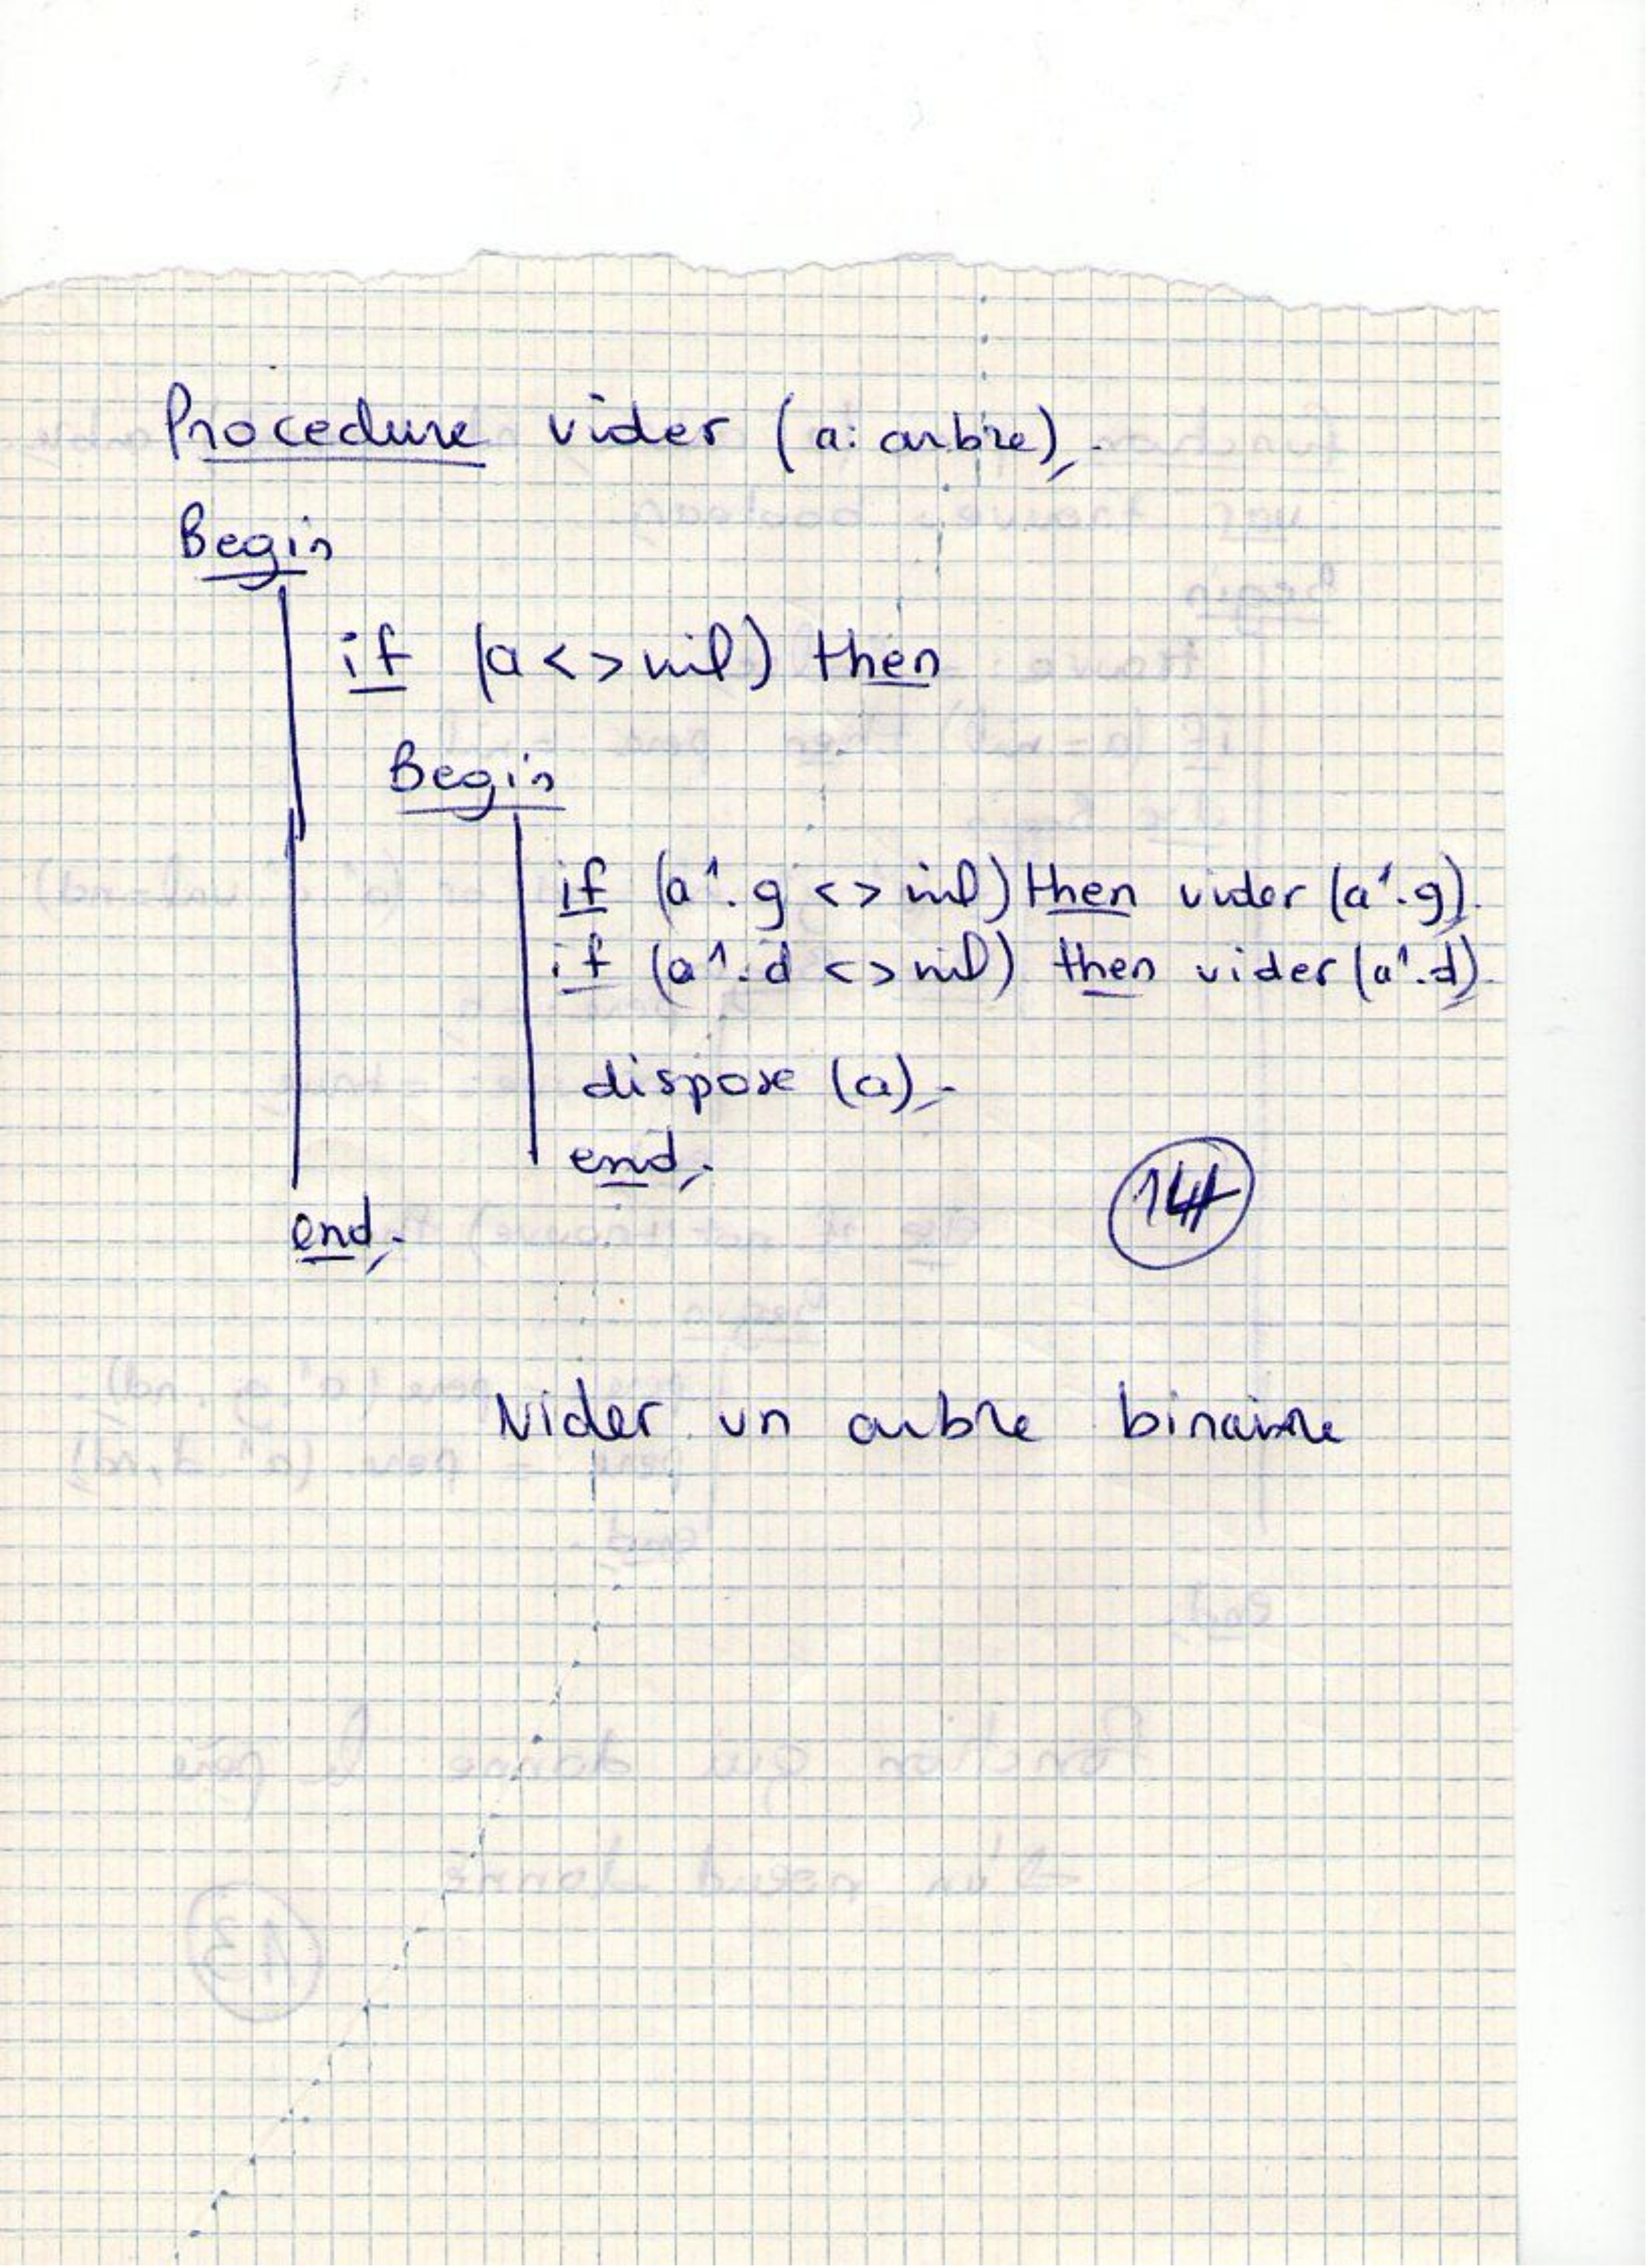 Procedure vider (a: arbre);
Begin
if (a <> nil) then
Begin
if (a^.g <> nil) then vider (a^.g);
if (a^.d <> nil) then vider (a^.d);
dispose (a);
end;
14
end;
Vider un arbre binaire